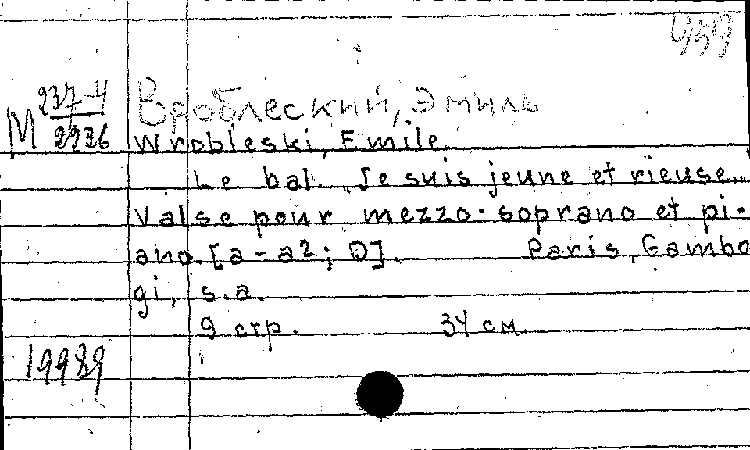 959
М 237-4/2936
Вроблеский, Эмиль
Wrobleski, Emile.
Le bal. Je suis jeune et rieuse..
Valse pour mezzo-soprano et pi-
ano. [a - a²; D]. Paris, Gambo
gi, s.a.
9 стр. 34 см.
19989